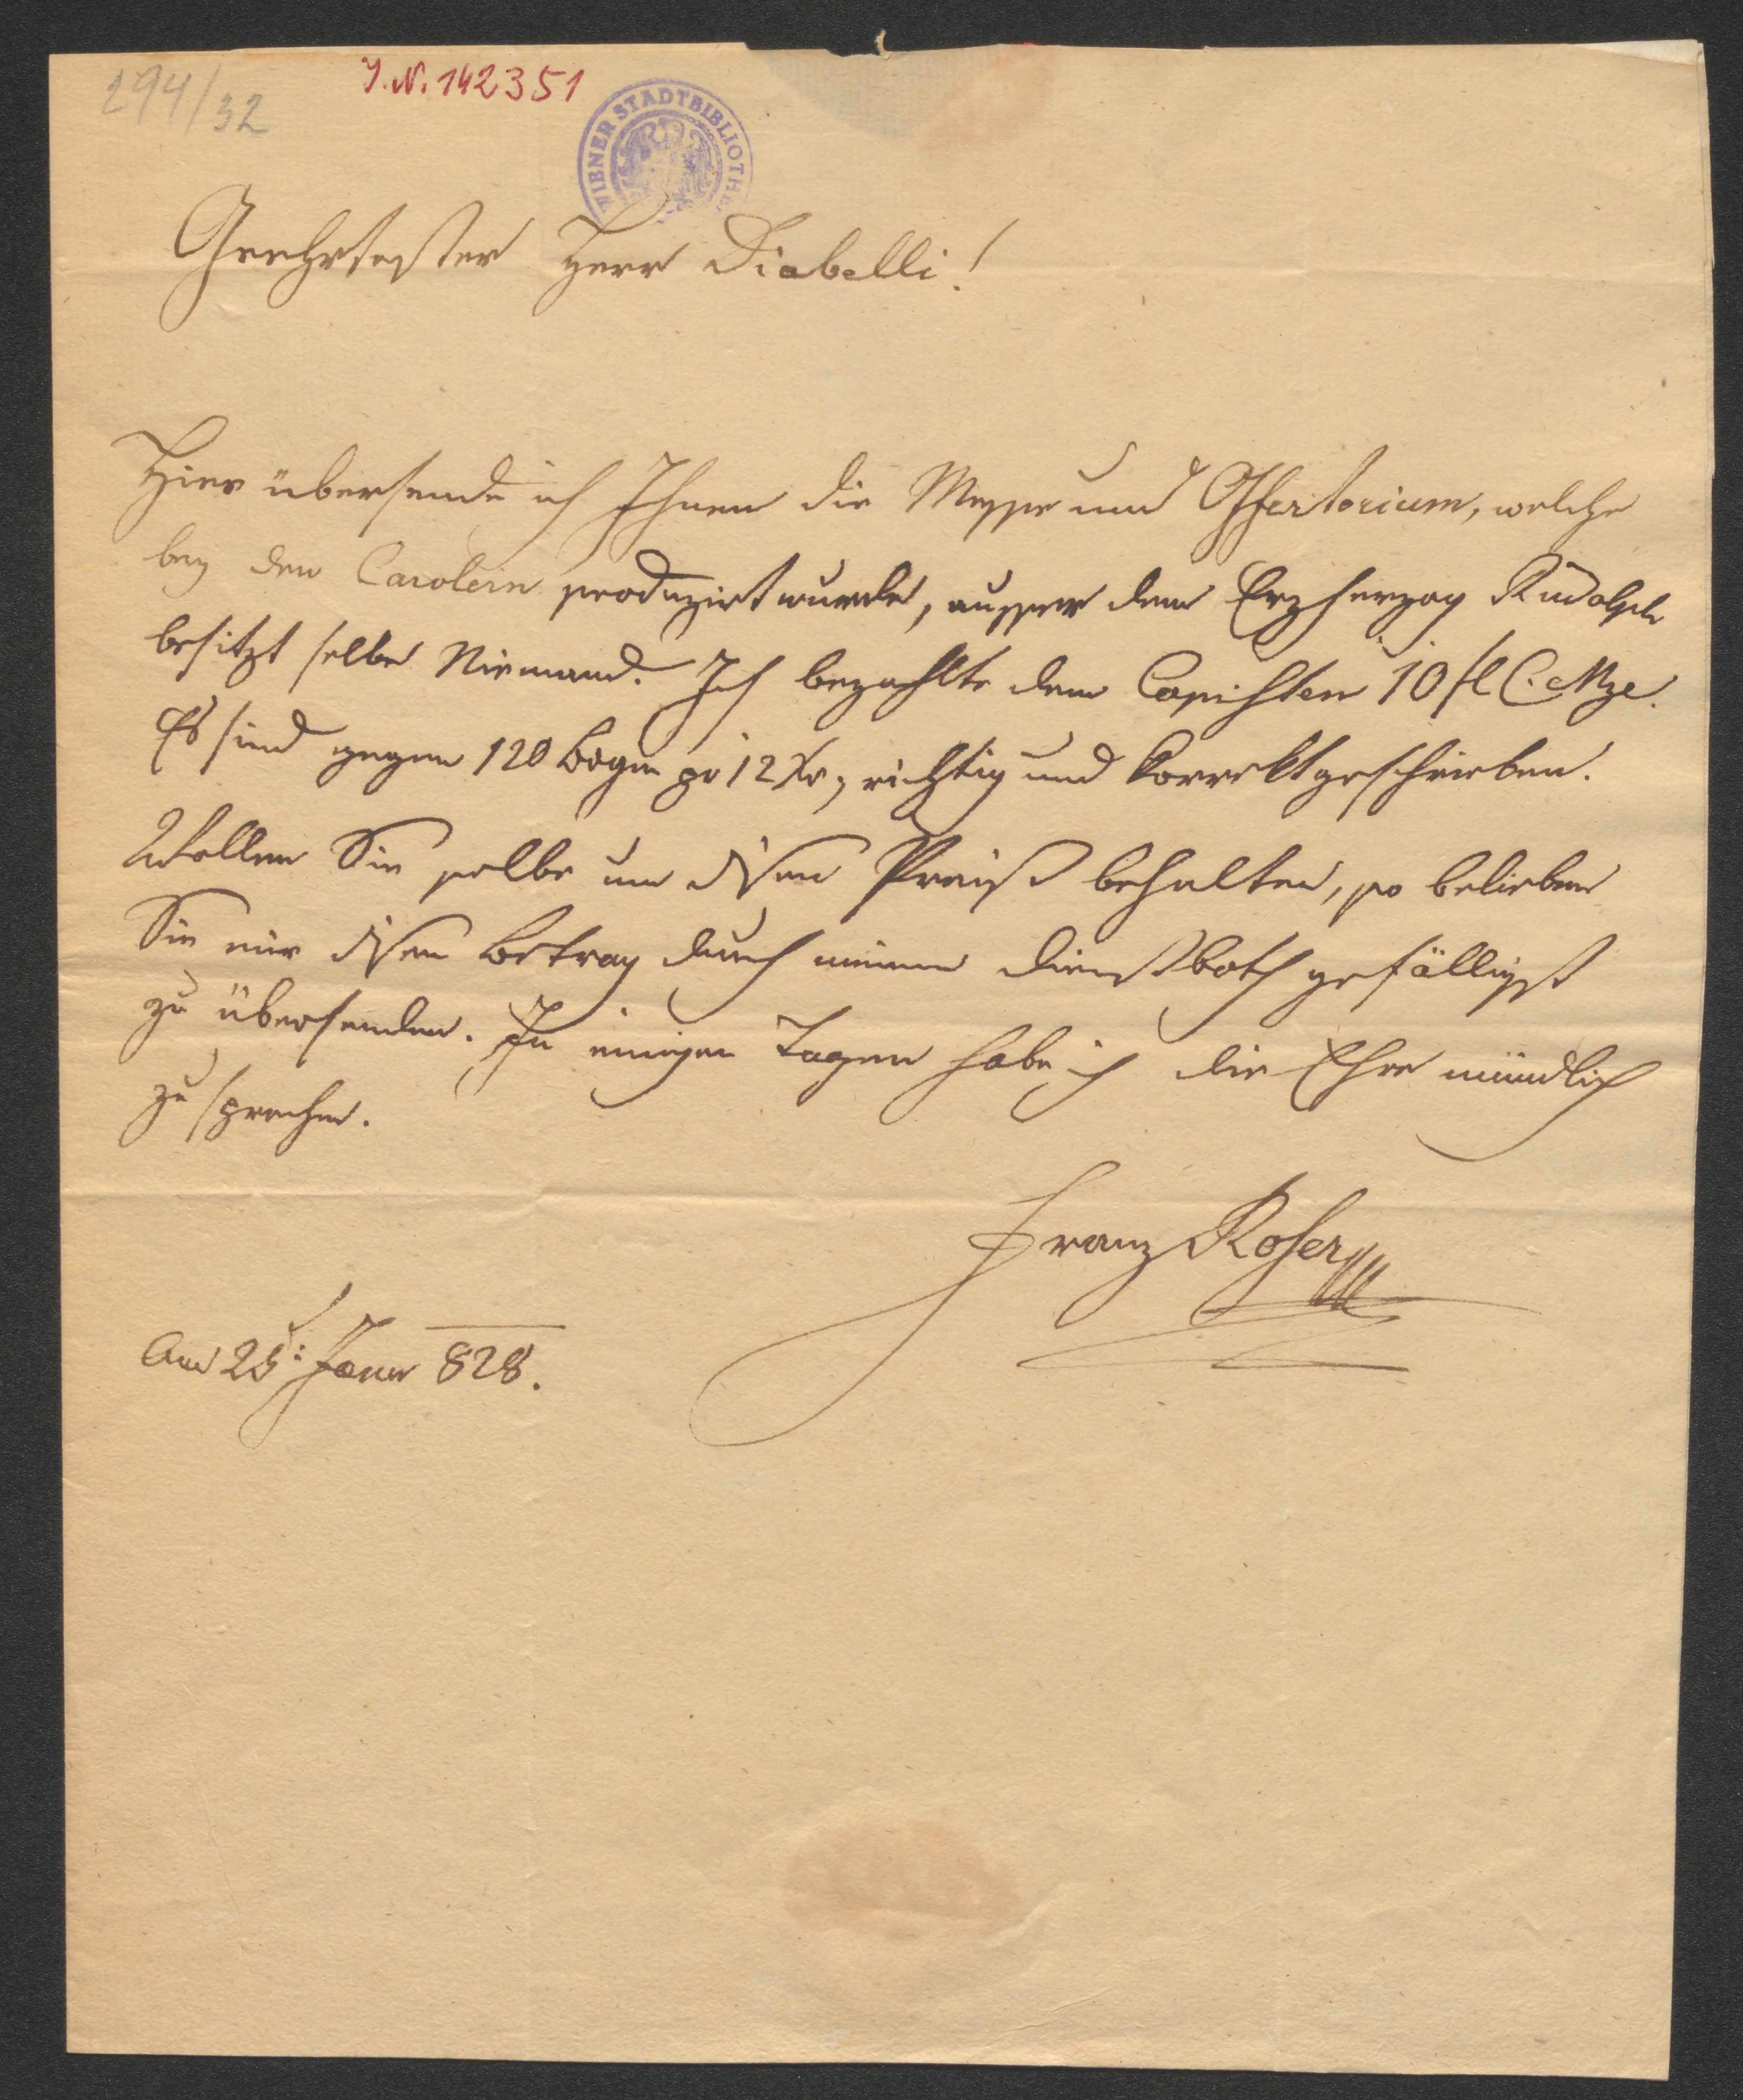 294/32
I.N. 142351
WIENER STADTBIBLIOTHE
Geehrtester Herr Diabelli!
Hier übersende ich Ihnen die Messe und Offertorium, welche
bey den Carolein produzirt wurde, ausser dem Erzherzog Rudolph
besitzt selbe Niemand. Ich bezahlte dem Copisten 10 fl C. Mze.
Es sind gegen 120 Bogen zu 12 Xr, richtig und korrekt geschrieben.
Wollen Sie selbe um disen Preiß behalten, so belieben
Sie mir disen Betrag durch meinen Dienstboth gefälligst
zu übersenden. In einigen Tagen habe ich die Ehre mündlich
zu sprechen.
Franz Roser
Am 25: Jäner 828.